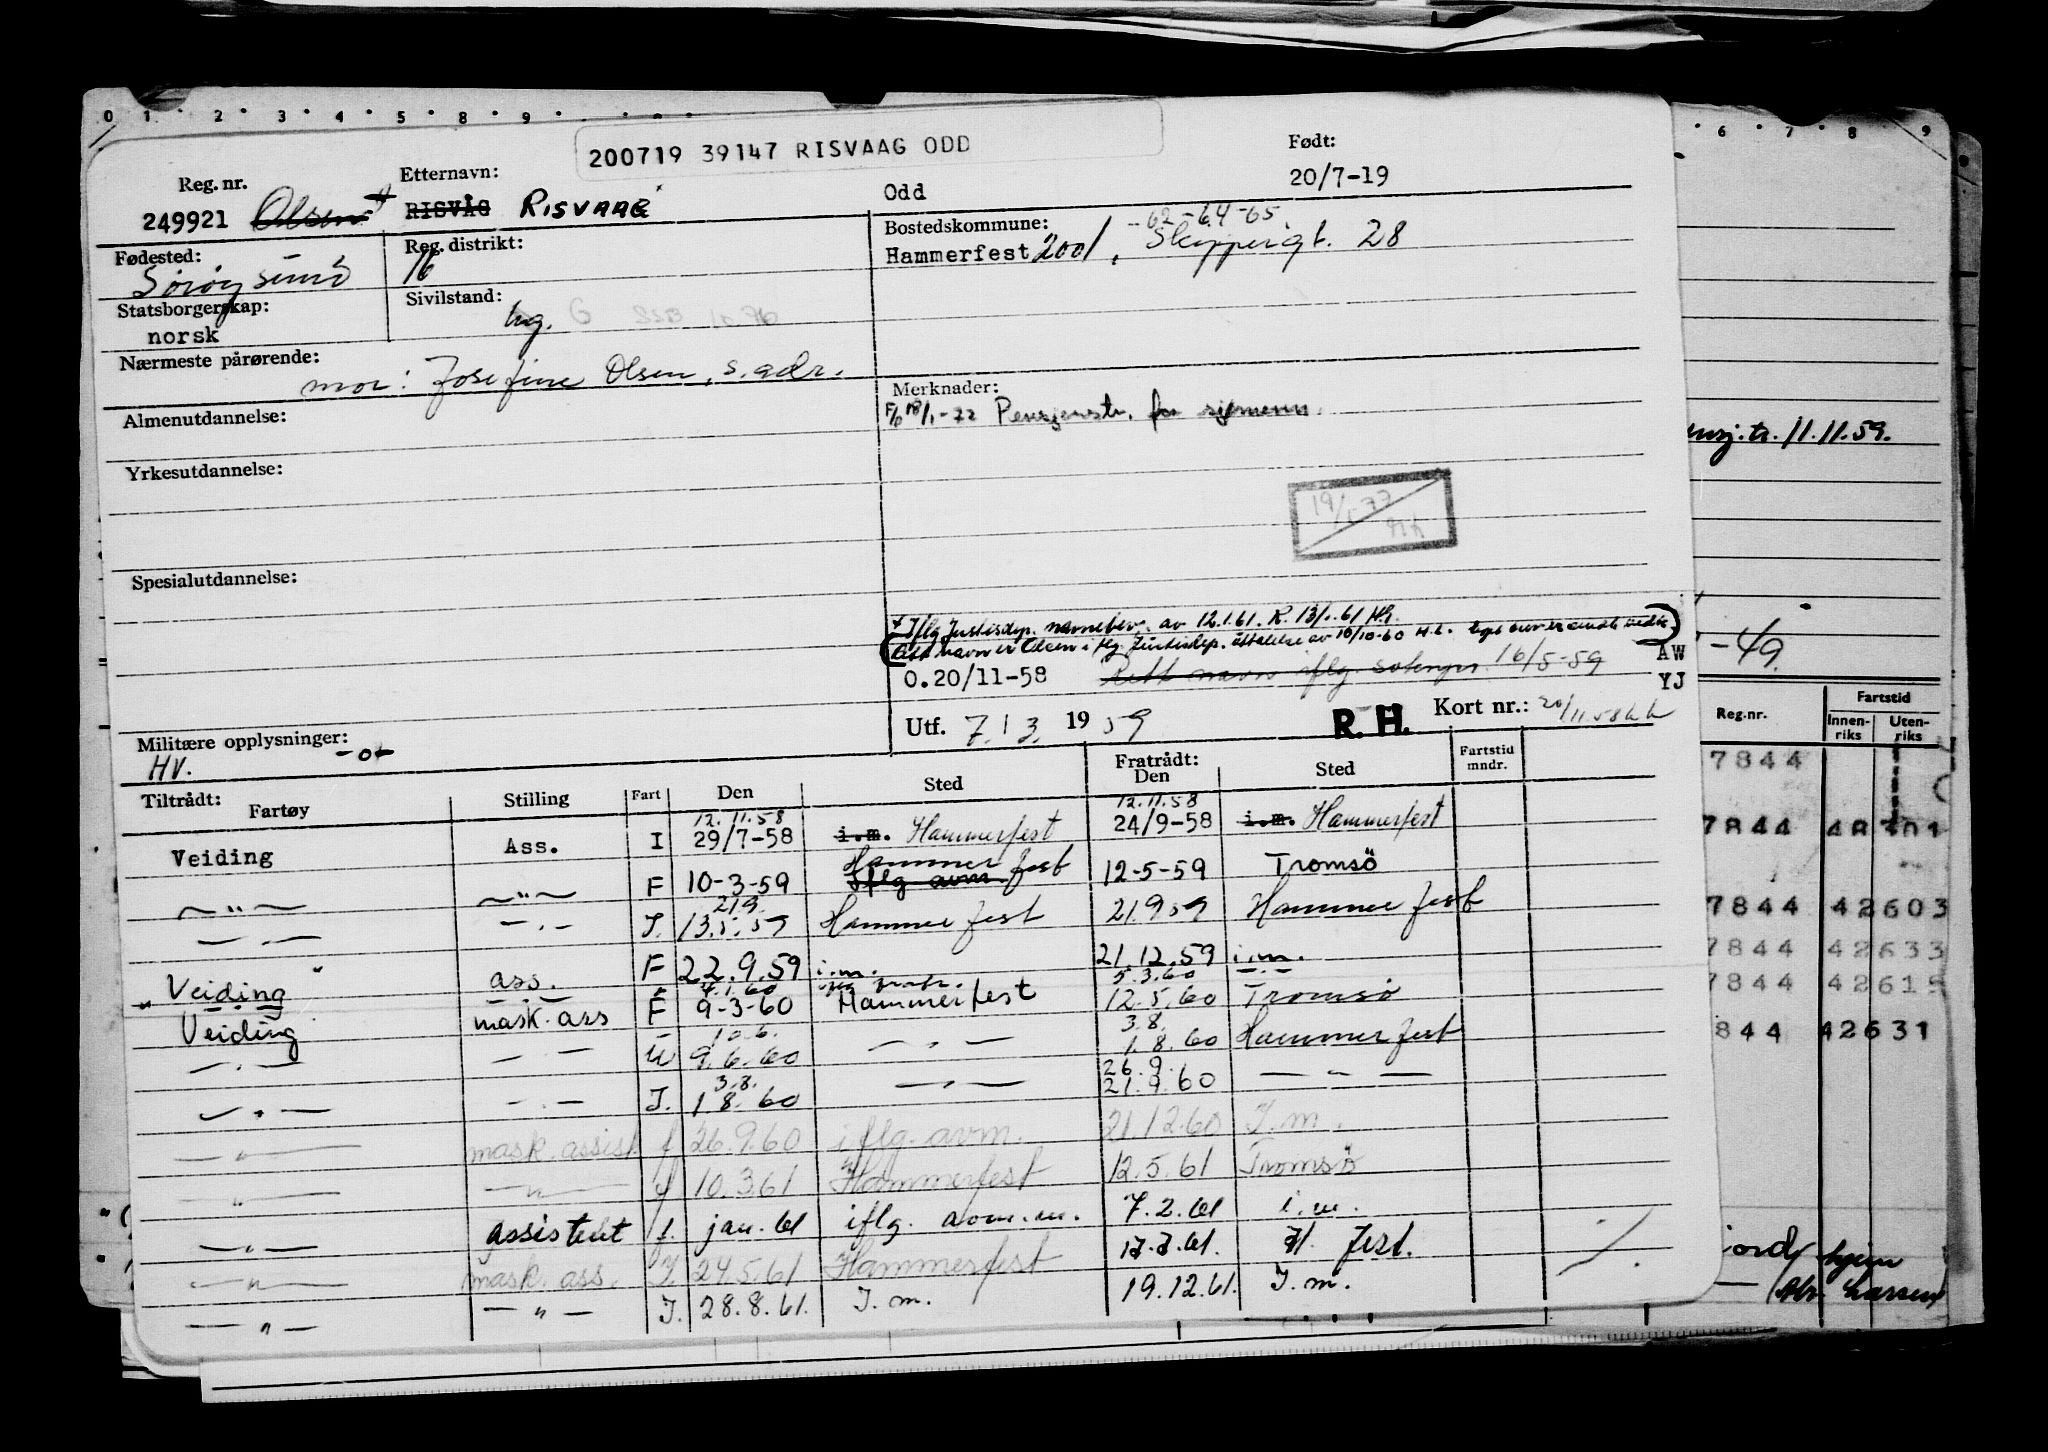 0 1 2 3 4 5 8 9
200719 39147 RISVAAG ODD
Reg. nr.
249921 Olsen
Etternavn:
RISVÅG RISVAAG
Odd
Født:
20/7-19
Fødested:
Sørøysund
Reg. distrikt:
16
Bostedskommune: -62-64-65
Hammerfest 2001, Skippergt. 28
Statsborgerskap:
norsk
Sivilstand:
ug. G
Nærmeste pårørende:
mor: Josefine Olsen, s. adr.
Almenutdannelse:
Yrkesutdannelse:
Spesialutdannelse:
Merknader:
F/6 18/1-72 Pensjonstr. for sjømenn.
+ Iflg Justisdep. navnebev. av 12.1.61. R. 13/1.61 H.G.
Rett navn er Olsen iflg. Justisdep. uttalelse av 10/10-60
O.20/11-58 Rett navn iflg. 16/5-59
AW
YJ
Utf. 7/3. 1959 R. H. Kort nr.: 20/11.58
Militære opplysninger:
HV. -o-
Tiltrådt: Fartøy Stilling Fart Den Sted Fratrådt: Den Sted Fartstid mndr.
12.11.58 12.11.58
Veiding Ass. I 29/7-58 i.m. Hammerfest 24/9-58 i.m. Hammerfest
—"— —"— F 10-3-59 Iflg avm. Hammerfest 12-5-59 Tromsö
21.9.
—"— —"— I. 13.5.59 Hammerfest 21.9 59 Hammerfest
Veiding ass. F 22.9.59 i.m. 21.12.59 i.m.
—"— —"— 4.1.60 5.3.60 —"—
Veiding mask. ass F 9-3-60 Hammerfest 12.5.60 Tromsø
10.6. 3.8.
—"— —"— U 9.6.60 —"— 1.8.60 Hammerfest
3.8. 26.9.
—"— —"— I. 1.8.60 —"— 21.9.60 —"—
—"— mask. assist f 26.9.60 iflg. avm. 21.12.60 I.m.
—"— —"— f 10.3.61 Hammerfest 12.5.61 Tromsø
—"— assistent f. jan. 61 iflg. avm. 7.2.61 i.m.
—"— mask. ass. I 24.5.61 Hammerfest 17.7.61. H. fest.
—"— —"— I. 28.8.61. I.m. 19.12.61. I.m.
6 7 8 9
11.11.59.
-49.
Reg.nr. Fartstid
Innenriks Utenriks
7844
7844 48701
7844 42603
7844 42633
7844 42615
844 42631
Larsen